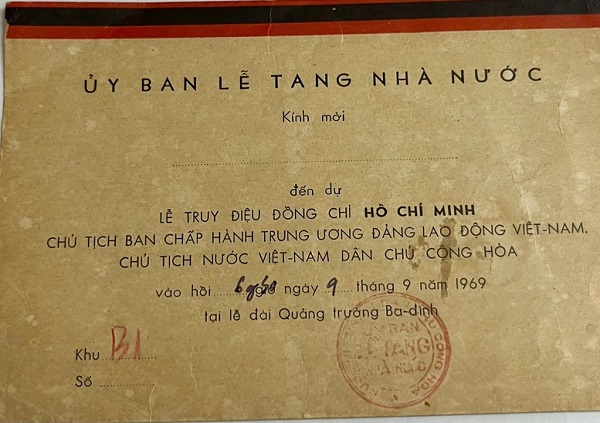 ỦY BAN LỄ TANG NHÀ NƯỚC
Kính mời
đến dự
LỄ TRUY ĐIỆU ĐỒNG CHÍ HỒ CHÍ MINH
CHỦ TỊCH BAN CHẤP HÀNH TRUNG ƯƠNG ĐẢNG LAO ĐỘNG VIỆT-NAM,
CHỦ TỊCH NƯỚC VIỆT-NAM DÂN CHỦ CỘNG HÒA
vào hồi 6 giờ ngày 9 tháng 9 năm 1969
tại lễ đài Quảng trường Ba-đình
Khu B1
Số
BAN
LỄ TANG